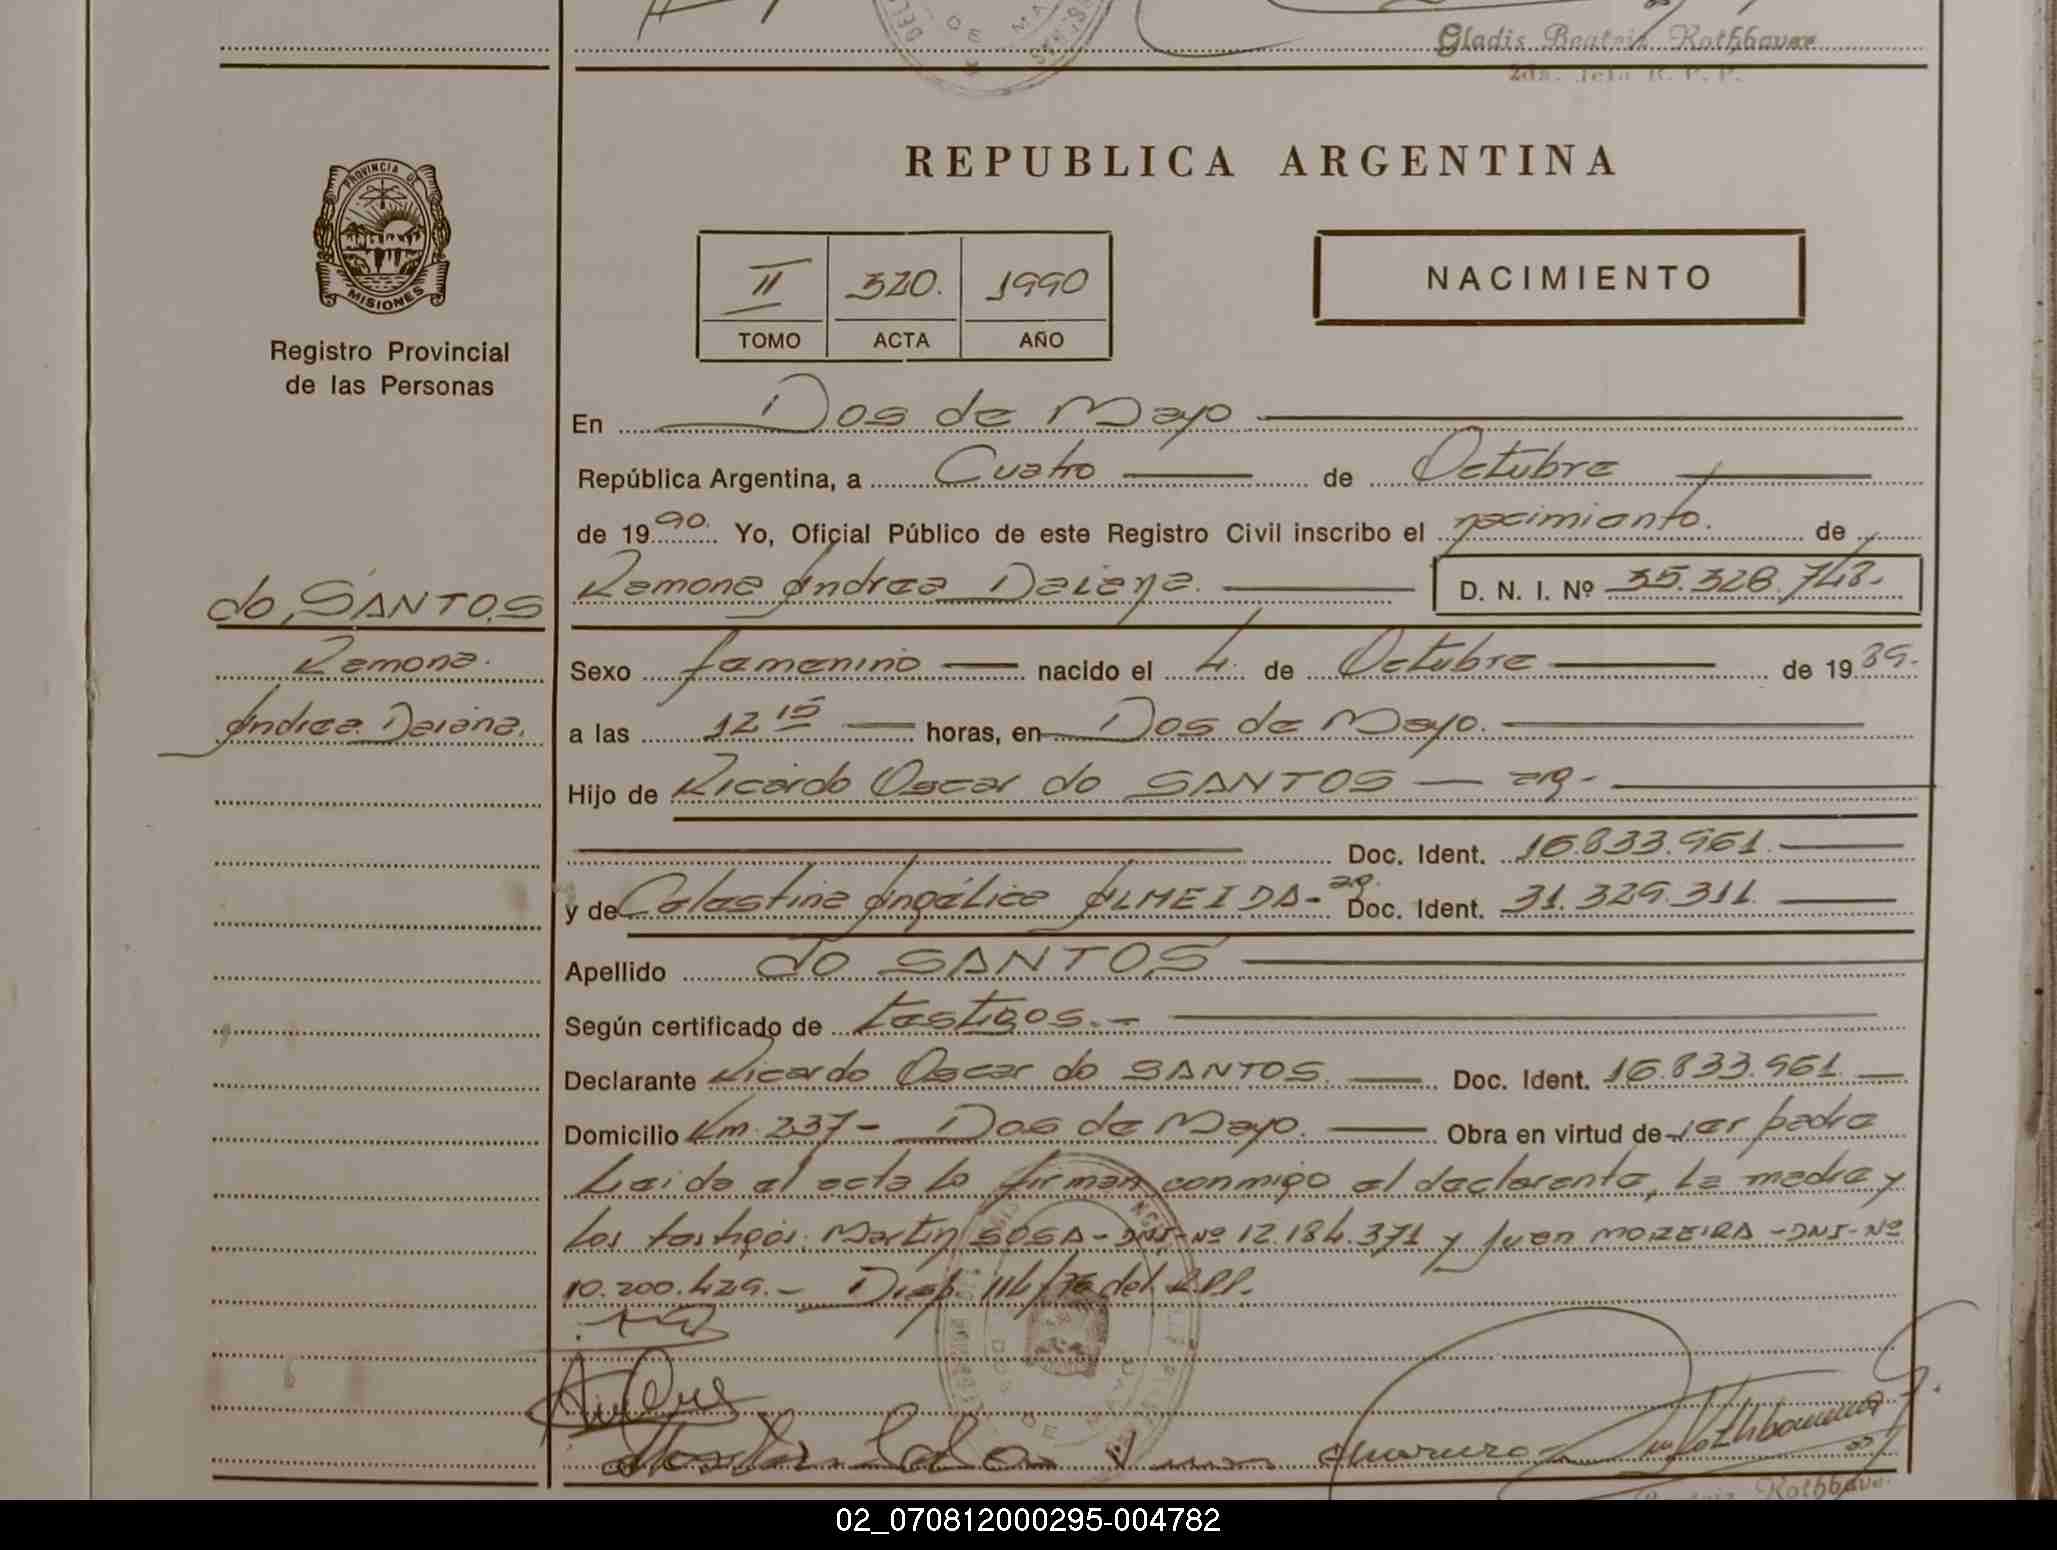 Gladis Beatriz Rothbauer
2da. Jefa R. P. P.
DE MA
PROVINCIA DE
MISIONES
Registro Provincial
de las Personas
REPUBLICA ARGENTINA
II 320. 1990
TOMO ACTA AÑO
NACIMIENTO
En Dos de Mayo
República Argentina, a Cuatro de Octubre
de 1990. Yo, Oficial Público de este Registro Civil inscribo el nacimiento. de
Ramona Andrea Daiana. D. N. I. Nº 35.328.743.
do SANTOS
Ramona.
Andrea Daiana.
Sexo femenino nacido el 4. de Octubre de 1989.
a las 12 15 horas, en Dos de Mayo.
Hijo de Ricardo Oscar do SANTOS — arg-
Doc. Ident. 16.833.961.
y de Celestina Angélica ALMEIDA- ag. Doc. Ident. 31.329.311.
Apellido do SANTOS
Según certificado de testigos.-
Declarante Ricardo Oscar do SANTOS. Doc. Ident. 16.833.961.
Domicilio Km. 237- Dos de Mayo. Obra en virtud de ser padre
Leida el acta lo firman conmigo el declarante, la madre y
los testigos: Martin SOSA-DNI-Nº 12.184.371 y Juan MOREIRA -DNI-Nº
10.200.429.- Disp. 114/76 del R.P.P.
Rothbauer
02_070812000295-004782